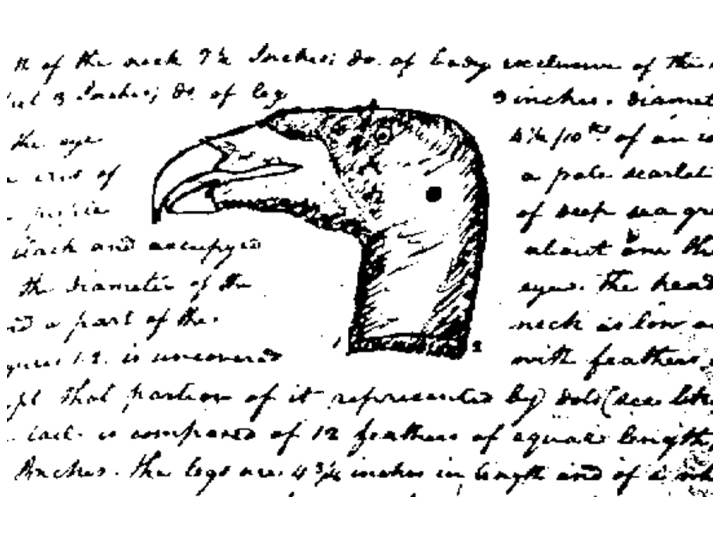 of the neck 7½ Inches; do. of body exclusive of the
3 Inches; do. of leg 3 inches. diamet
the eye 4½/10ths of an
iris of a pale scarlet
of deep sea gre
black and occupyed about one th
the diameter of the eyes. the head
a part of the neck as low as
1. 2. is uncovered with feathers
that portion of it represented by dots (see like
tail is composed of 12 feathers of equal length,
Inches. the legs are 4¾ inches in length and of a wh
1 2